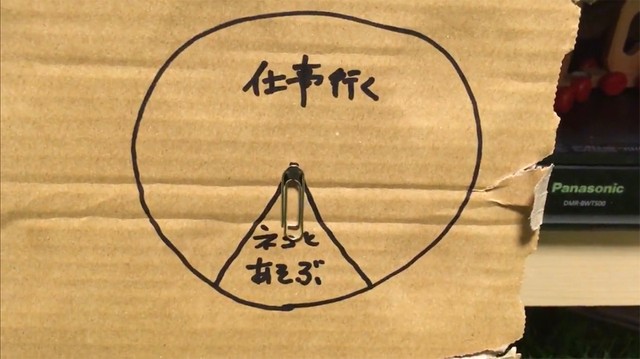 仕事行く
ネコと
あそぶ
Panasonic
DMR-BWT500